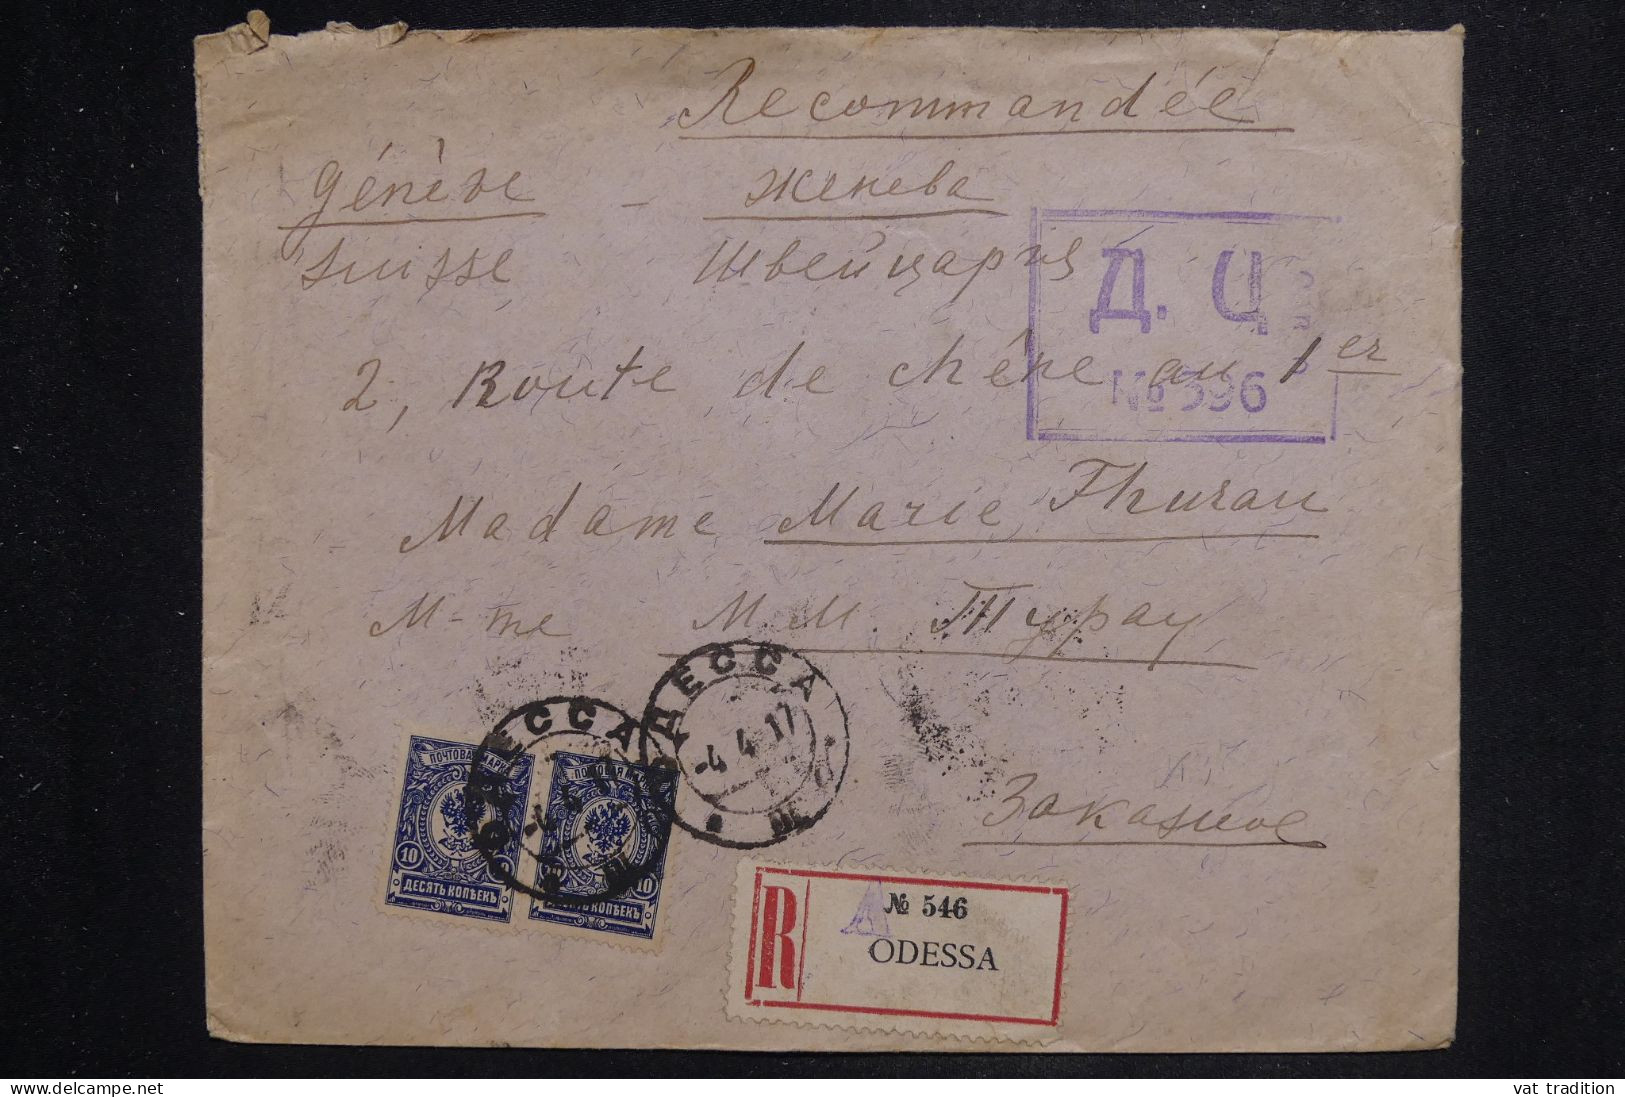 Recommandée
Génève - Женева
Suisse Швейцария
Д. Ц
№ 396
2, Route de chêne au 1er
Madame Marie Thurau
М-me М.М. Турау
ОДЕССА
-4 4 17
ОДЕССА
ПОЧТОВАЯ МАРКА
ПОЧТОВАЯ МАРКА
10
10
ДЕСЯТЬ КОПѢЕКЪ
ДЕСЯТЬ КОПѢЕКЪ
Заказное
R
A
№ 546
ODESSA
www.delcampe.net
vat tradition